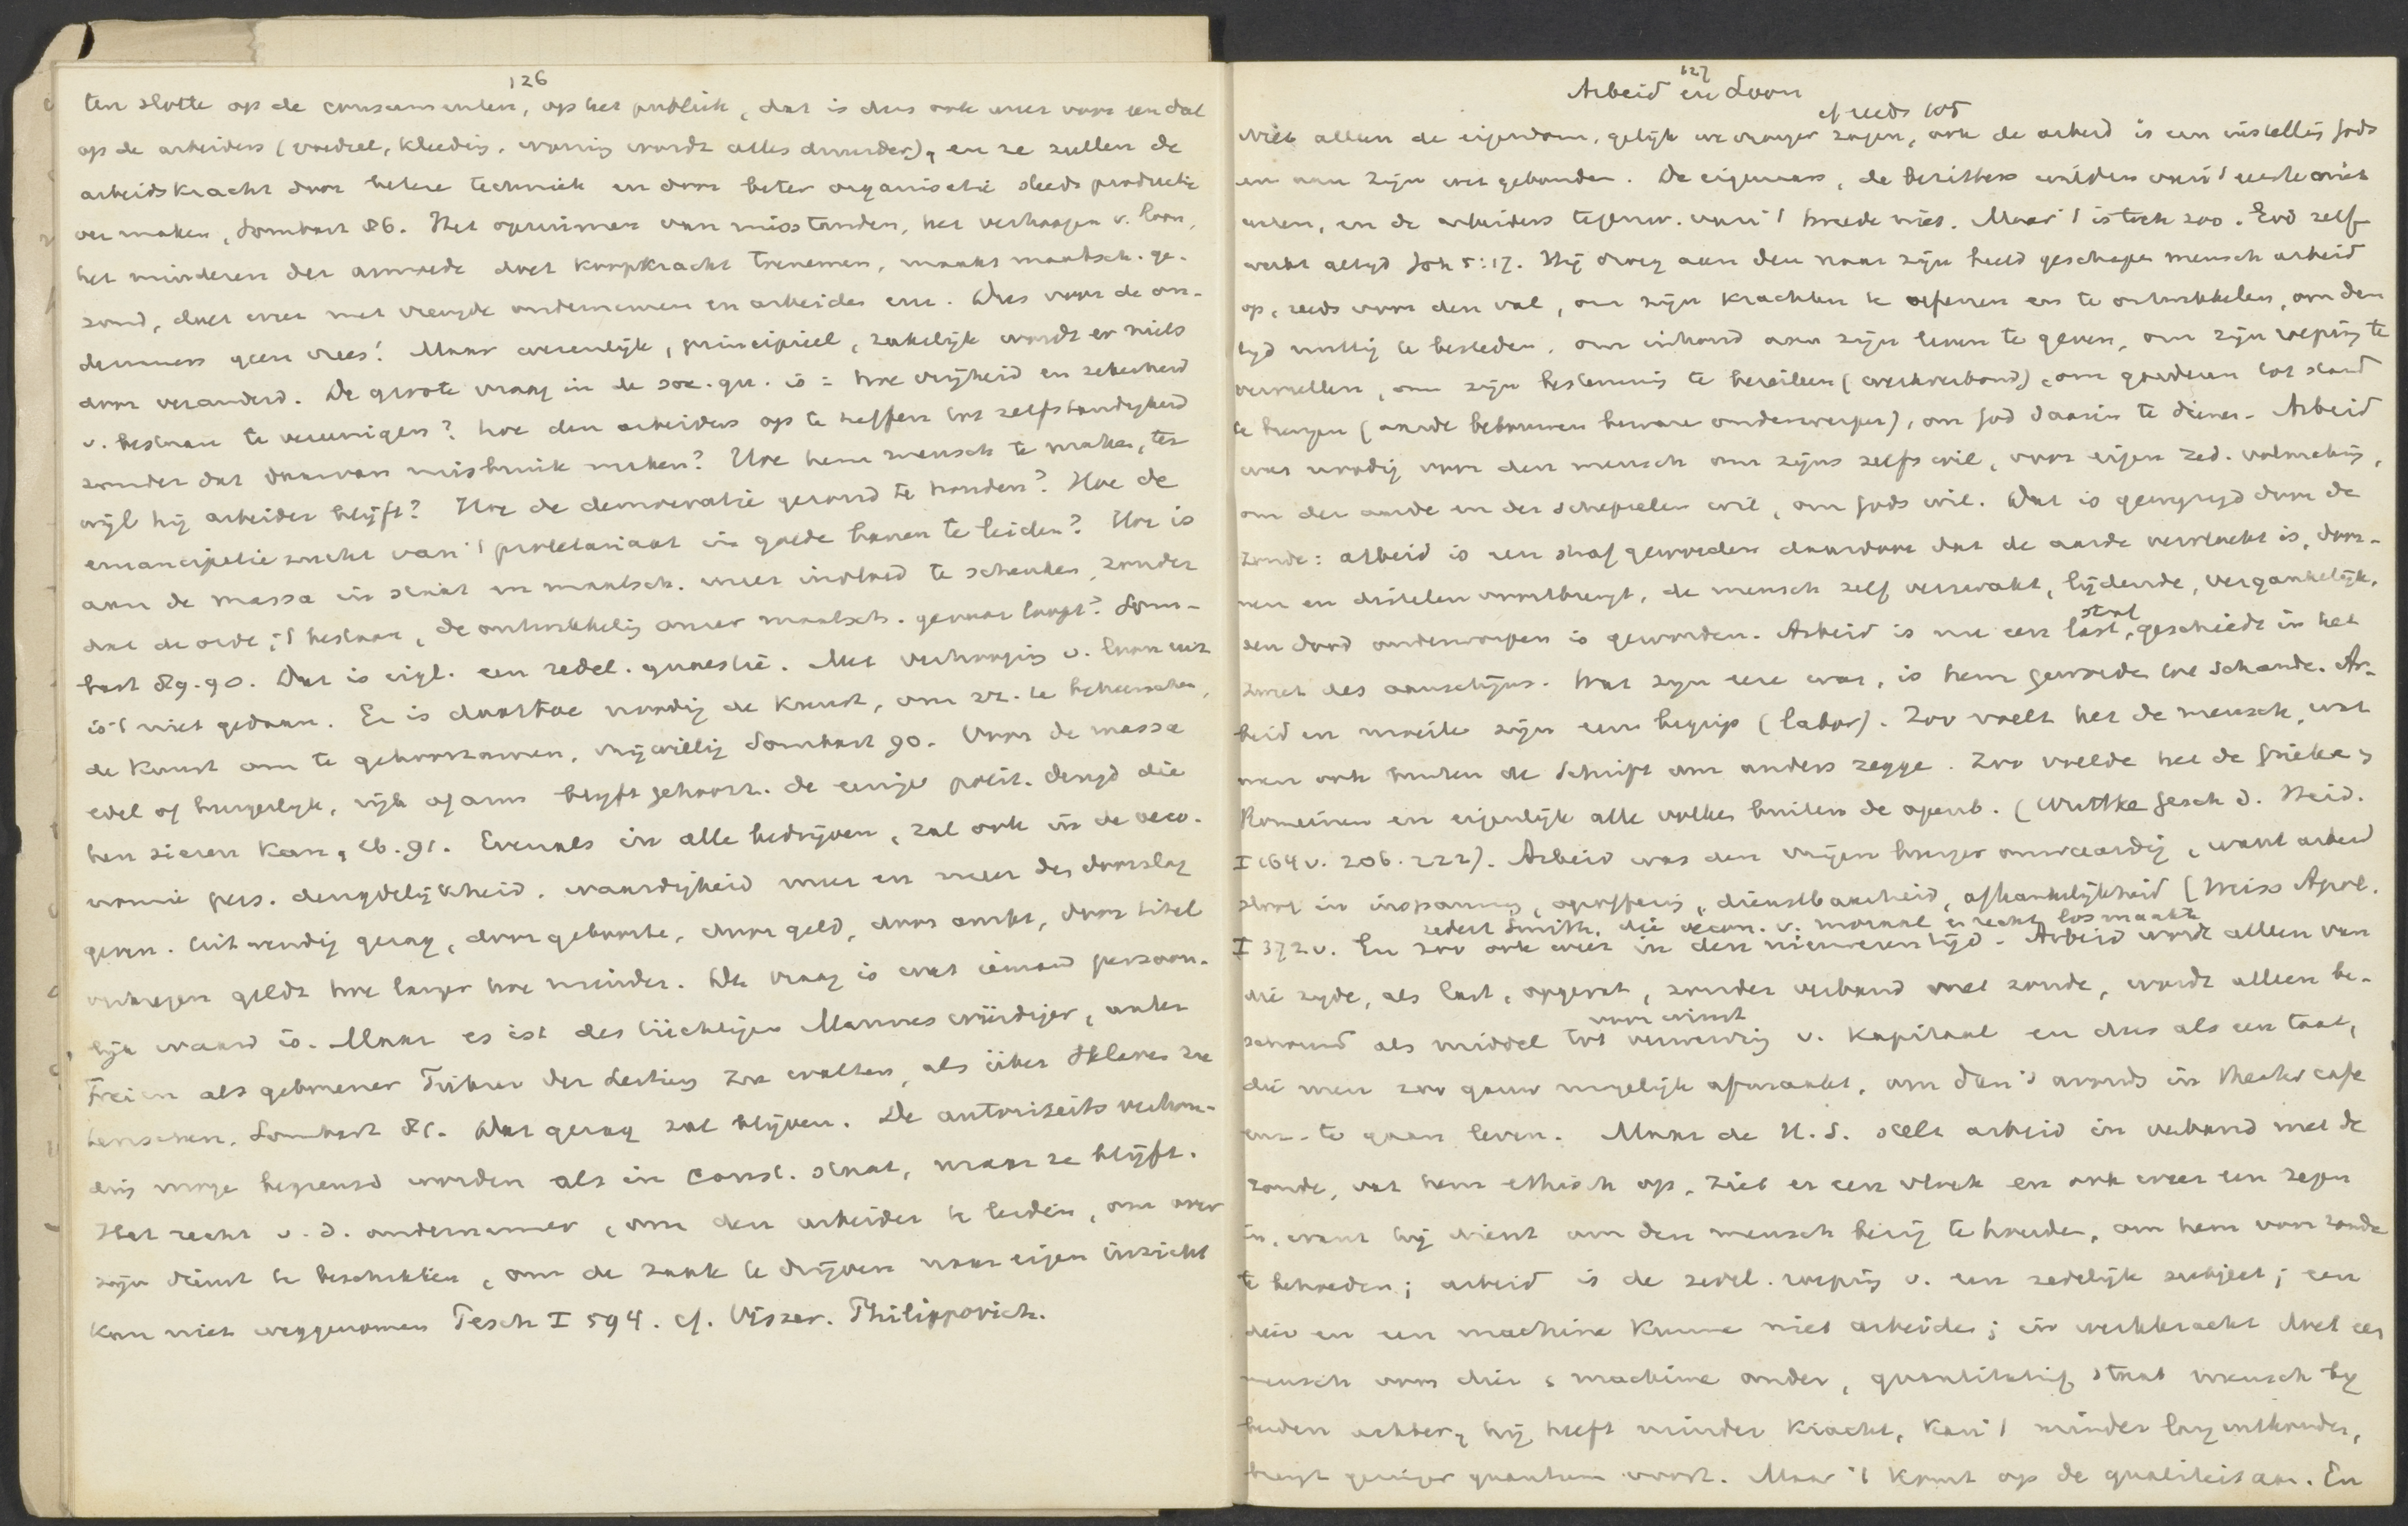 126
ten slotte op de consumenten, op het publiek, dat is dus ook weer voor een deel
op de arbeiders (voedsel, kleeding, woning wordt alles duurder), en ze zullen de
arbeidskracht door betere techniek en door beter organisatie steeds productie
ver maken, Sombart 86. Het opruimen van misstanden, het verhoogen v. loon,
het minderen der armoede doet koopkracht toenemen, maakt maatsch. ge-
zond, doet weer met vreugde ondernemen en arbeiden enz. Dus voor de on-
dernemers geen vrees! Maar wezenlijk, principieel, zakelijk wordt er niets
door veranderd. De groote vraag in de soc. qu. is = hoe vrijheid en zekerheid
v. bestaan te vereenigen? hoe den arbeiders op te heffen tot zelfstandigheid
zonder dat daarvan misbruik maken? Hoe hem mensch te maken, ter
wijl hij arbeider blijft? Hoe de democratie gezond te houden? Hoe de
emancipatie zucht van 't proletariaat in goede banen te leiden? Hoe is
aan de massa in staat en maatsch. meer invloed te schenken, zonder
dat de orde, 't bestaan, de ontwikkeling onzer maatsch. gevaar loopt? Som-
bart 89.90. Dat is eigl. een zedel. quaestie. Met verhooging v. loon enz
is 't niet gedaan. Er is daartoe noodig de kunst, om zn. te beheerschen,
de kunst om te gehoorzamen, vrijwillig Sombart 90. Voor de massa
edel of burgerlijk, rijk of arm blijft gehoorz. de eenige polit. deugd die
hen sieren kan, ib. 91. Evenals in alle bedrijven, zal ook in de oeco-
nomie pers. deugdelijkheid, waardigheid meer en meer den doorslag
geven. Uitwendig gezag, door geboorte, door geld, door ambt, door titel
verkregen geldt hoe langer hoe minder. De vraag is wat iemand persoon-
lijk waard is. Maar es ist des tüchtigen Mannes würdiger, unter
Freien als geborener Führer der Leitung zu walten, als über Sklaven zu
herrschen, Sombart 81. Dat gezag zal blijven. De autoriteits verhou-
ding moge begrensd worden als in const. staat, maar ze blijft.
Het recht v. d. ondernemer, om den arbeider te leiden, om over
zijn dienst te beschikken, om de zaak te drijven naar eigen inzicht
kan niet weggenomen Pesch I 594. cf. Visser. Philippovich.
127
Arbeid en Loon
cf reeds 105
Niet alleen de eigendom, gelijk we vroeger zagen, ook de arbeid is een instelling Gods
en aan Zijn wet gebonden. De eigenaars, de bezitters wilden van 't eerste niet
weten, en de arbeiders tegenw. van 't tweede niet. Maar 't is toch zoo. God zelf
werkt altijd Joh 5:17. Hij droeg aan den naar zijn beeld geschapen mensch arbeid
op, reeds voor den val, om zijn krachten te oefenen en te ontwikkelen, om den
tijd nuttig te besteden, om inhoud aan zijn leven te geven, om zijn roeping te
vervullen, om zijn bestemming te bereiken (werkverbond), om goederen tot stand
te brengen (aarde bebouwen beware onderwerpen), om God daarin te dienen. Arbeid
was noodig voor den mensch om zijns zelfs wil, voor eigen zed. volmaking,
om der aarde en der schepselen wil, om Gods wil. Dat is gewijzigd door de
zonde: arbeid is een straf geworden daardoor dat de aarde vervloekt is, door-
nen en distelen voortbrengt, de mensch zelf verzwakt, lijdende, vergankelijk,
den dood onderworpen is geworden. Arbeid is nu een last, straf, geschiedt in het
zweet des aanschijns. Wat zijn eere was, is hem geworden tot schande. Ar-
beid en moeite zijn een begrip (labor). Zoo voelt het de mensch, wat
men ook buiten de Schrift om anders zegge. Zoo voelde het de Grieken,
Romeinen en eigenlijk alle volken buiten de openb. (Wuttke Gesch d. Heid.
I 164 v. 206. 222). Arbeid was den vrijen burger onwaardig, want arbeid
sloot in inspanning, opoffering, dienstbaarheid, afhankelijkheid (Weiss Apol.
sedert Smith, die oecon. v. moraal en recht losmaakte
I 372 v. En zoo ook weer in den nieuweren tijd. Arbeid wordt alleen van
die zijde, als last, opgevat, zonder verband met zonde, wordt alleen be-
schouwd als middel tot verwerving van winst v. kapitaal en dus als een taak,
die men zoo gauw mogelijk afmaakt, om dan 's avonds in theater cafe
enz. te gaan leven. Maar de H.S. stelt arbeid in verband met de
zonde, vat hem ethisch op, ziet er een vloek en ook weer een zegen
in, want hij dient om den mensch bezig te houden, om hem voor zonde
te behoeden; arbeid is de zedel. roeping v. een zedelijk subject; een
dier en een machine kunne niet arbeiden; in werkkracht doet een
mensch voor dier & machine onder, quantitatief staat mensch bij
beiden achter, hij heeft minder kracht, kan 't minder lang uithouden,
brengt geringer quantum voort. Maar 't komt op de qualiteit aan. En